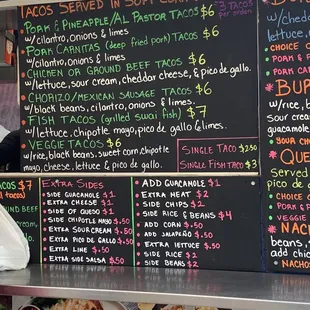 TACOS SERVED IN SOFT CORN
PORK & PINEAPPLE/AL PASTOR TACOS $6
w/cilantro, onions & limes
PORK CARNITAS (deep fried pork) TACOS $6
w/cilantro, onions & limes
CHICKEN OR GROUND BEEF TACOS $6
w/lettuce, sour cream, cheddar cheese, & pico de gallo.
CHORIZO/MEXICAN SAUSAGE TACOS $6
w/black beans, cilantro, onions, & limes.
FISH TACOS (grilled swai fish) $7
w/lettuce, chipotle mayo, pico de gallo & limes.
VEGGIE TACOS $6
w/rice, black beans, sweet corn, chipotle
mayo, cheese, lettuce & pico de gallo
3 TACOS
per order
SINGLE TACO $2.50
SINGLE FISH TACO $3
TACOS $7
EXTRA SIDES
SIDE GUACAMOLE $1
EXTRA CHEESE $1
SIDE OF QUESO $1
SIDE CHIPOTLE MAYO $.50
EXTRA SOUR CREAM $.50
EXTRA PICO DE GALLO $.50
EXTRA LIME $.50
EXTRA SALSA $.50
ADD GUACAMOLE $1
EXTRA MEAT $2
SIDE CHIPS $2
SIDE RICE & BEANS $4
ADD CORN $.50
ADD JALAPEÑO $.50
EXTRA LETTUCE $.50
SIDE RICE $2
SIDE BEANS $2
w/chedd
lettuce,
CHOICE O
PORK &
PORK CAR
BU
w/rice, b
sour crea
guacamole
YOUR CHO
QUE
Served
pico de
CHOICE
PORK &
VEGGIE
NACH
beans,
w/
NACHOS